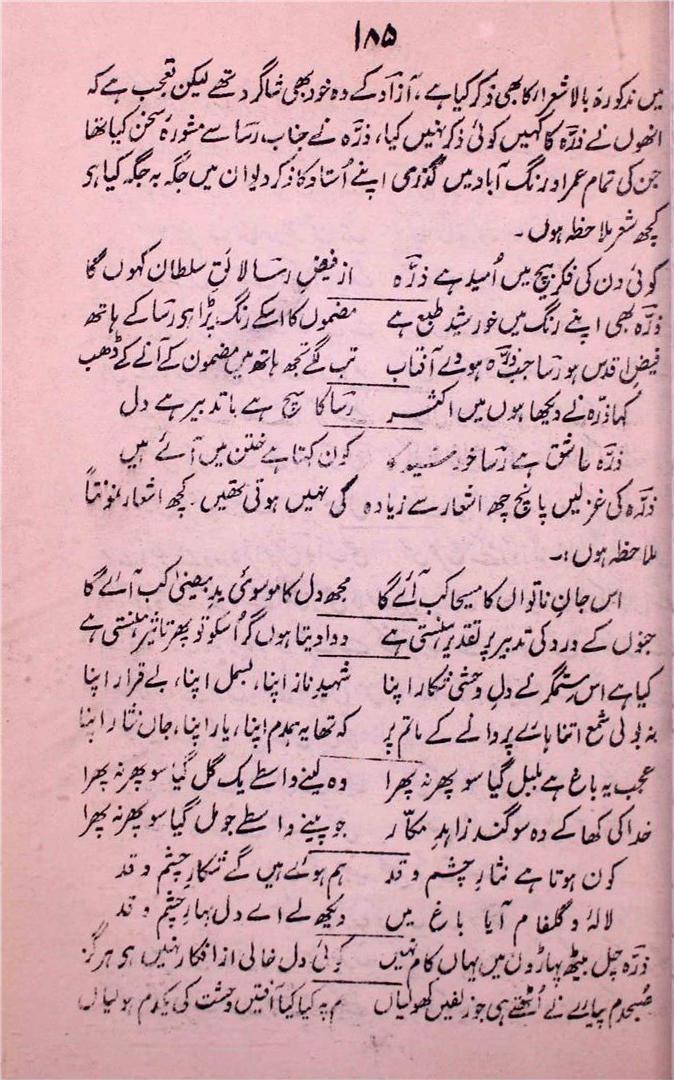 ۱۸۵
میں مذکورہ بالا شعرا کا بھی ذکر کیا ہے، آزاد کے وہ خود بھی شاگرد تھے لیکن تعجب ہے کہ
انھوں نے ذرّہ کا کہیں کوئی ذکر نہیں کیا، ذرّہ نے جناب رسا سے مشورۂ سخن کیا تھا
جن کی تمام عمر اورنگ آباد میں گذری اپنے اُستاد کا ذکر دیوان میں جگہ بہ جگہ کیا ہو
کچھ شعر ملاحظہ ہوں۔
کوئی دن کی فکر بیچ میں اُمید ہے ذرّہ از فیضِ رسا لائقِ سلطان کہوں گا
ذرّہ بھی اپنے رنگ میں خورشید طبع ہے مضموں کا اسکے رنگ پڑا ہی رسا کے ہاتھ
فیضِ اقدس ہو رسا جب ذرّہ ہووے آفتاب تب لگے تجھ ہاتھ میں مضمون کے آنے کے ڈھب
کہا ذرّہ نے دیکھا ہوں میں اکثر رسا کا سچ ہے با تدبیر ہے دل
ذرّہ عاشق ہے رسا کون کہتا ہے ختن میں آئے ہیں
ذرّہ کی غزلیں پانچ چھ اشعار سے زیادہ کی نہیں ہوتی تھیں۔ کچھ اشعار نمونتاً
ملاحظہ ہوں:۔
اس جانِ ناتواں کا مسیحا کب آئے گا مجھ دل کا موسوئی یدِ بیضیٰ کب آئے گا
جنوں کے درد کی تدبیر پر تقدیر ہنستی ہے دوا دیتا ہوں گر اُسکو تو پھر تاثیر ہنستی ہے
کیا ہے اس ستمگر نے دلِ وحشی شکار اپنا شہیدِ ناز اپنا، بسمل اپنا، بے قرار اپنا
نہ بولی شمع اتنا ہائے پروانے کے ماتم پر کہ تھا یہ ہمدم اپنا، یار اپنا، جاں نثار اپنا
عجب یہ باغ ہے بلبل گیا سو پھر نہ پھرا وہ لینے واسطے یک گل گیا سو پھر نہ پھرا
خدا کی کھا کے وہ سوگند زاہدِ مکّار جو پینے واسطے جو مل گیا سو پھر نہ پھرا
کون ہوتا ہے نثارِ چشم و قد ہم ہوئے ہیں گے شکارِ چشم و قد
لالۂ و گلفام آیا باغ میں دیکھ لے اے دل بہارِ چشم و قد
ذرّہ چل بیٹھ پہاڑوں میں یہاں کام نہیں کوئی دل خالی از افکار نہیں ہی ہرگز
صبحدم پیارے نے اُٹھتے ہی جو زلفیں کھولیاں ہم پہ کیا کیا آفتیں وحشت کی یکدم ہولیاں